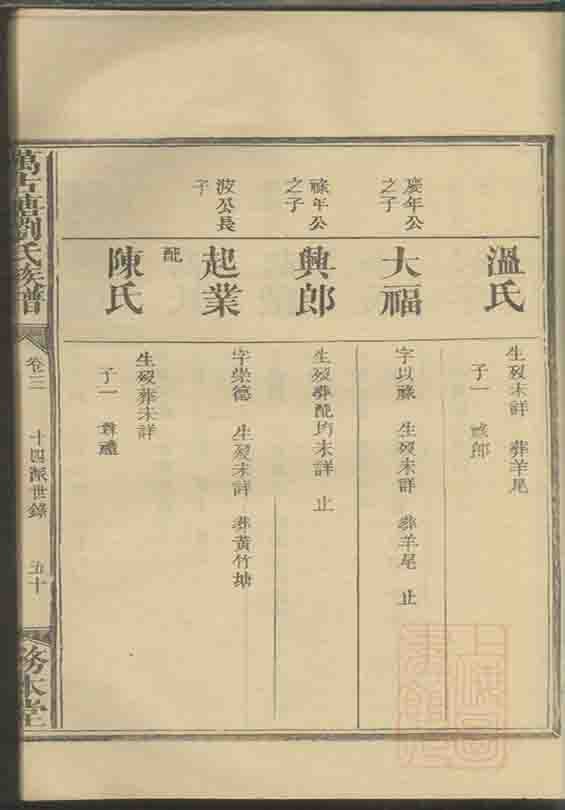 溫氏
生歿未詳 葬羊尾
子一 
慶年公
之子
大福
字以祿 生歿未詳 葬羊尾 止
祿年公
之子
興郎
生歿葬配均未詳 止
波公長
子
起業
字崇德 生歿未詳 葬黃竹塘
配
陳氏
生歿葬未詳
子一 尊禮
萬古塘劉氏族譜
卷三
十四派世錄
五十
務本堂